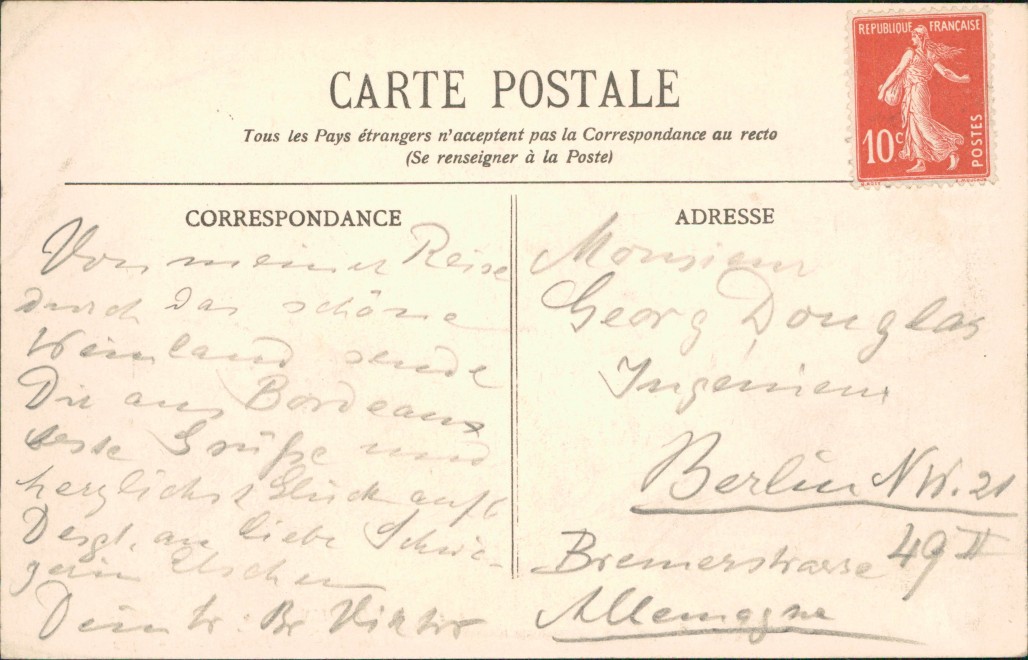 CARTE POSTALE
Tous les Pays étrangers n'acceptent pas la Correspondance au recto
(Se renseigner à la Poste)
REPUBLIQUE FRANÇAISE
10c
POSTES
CORRESPONDANCE
Von meiner Reise
durch das schöne
Weinland sende
Dir aus Bordeaux
beste Grüße und
herzliches Glückauf!
Desgl. an liebe Schwä-
gerin Elschen
Dein tr. Br. Viktor
ADRESSE
Monsieur
Georg Douglas
Ingénieur
Berlin NW. 21
Bremerstrasse 49 II
Allemagne